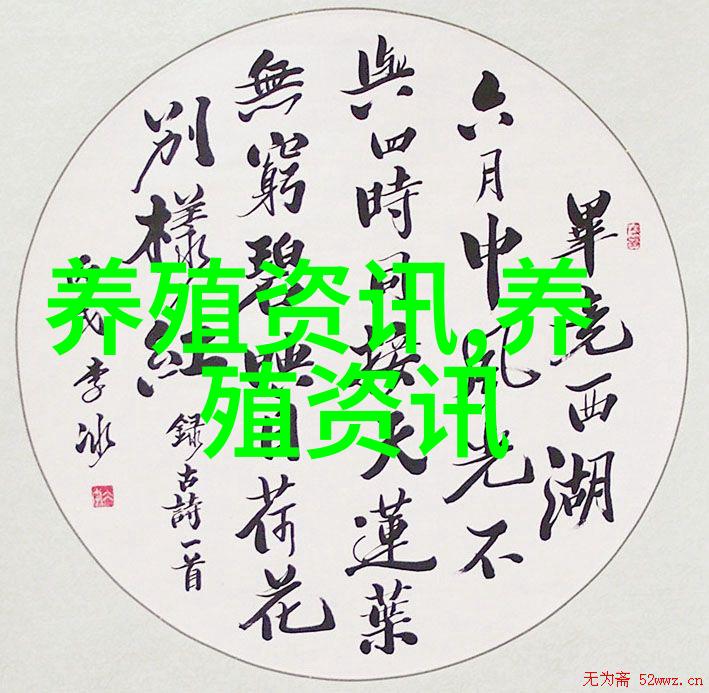 畢竟西湖
六月中風光不
與四時同接天蓮葉
無窮碧映日荷花
別樣紅
錄古詩一首
李冰
养殖资讯,养
殖资讯
无为斋 52wwz.cn